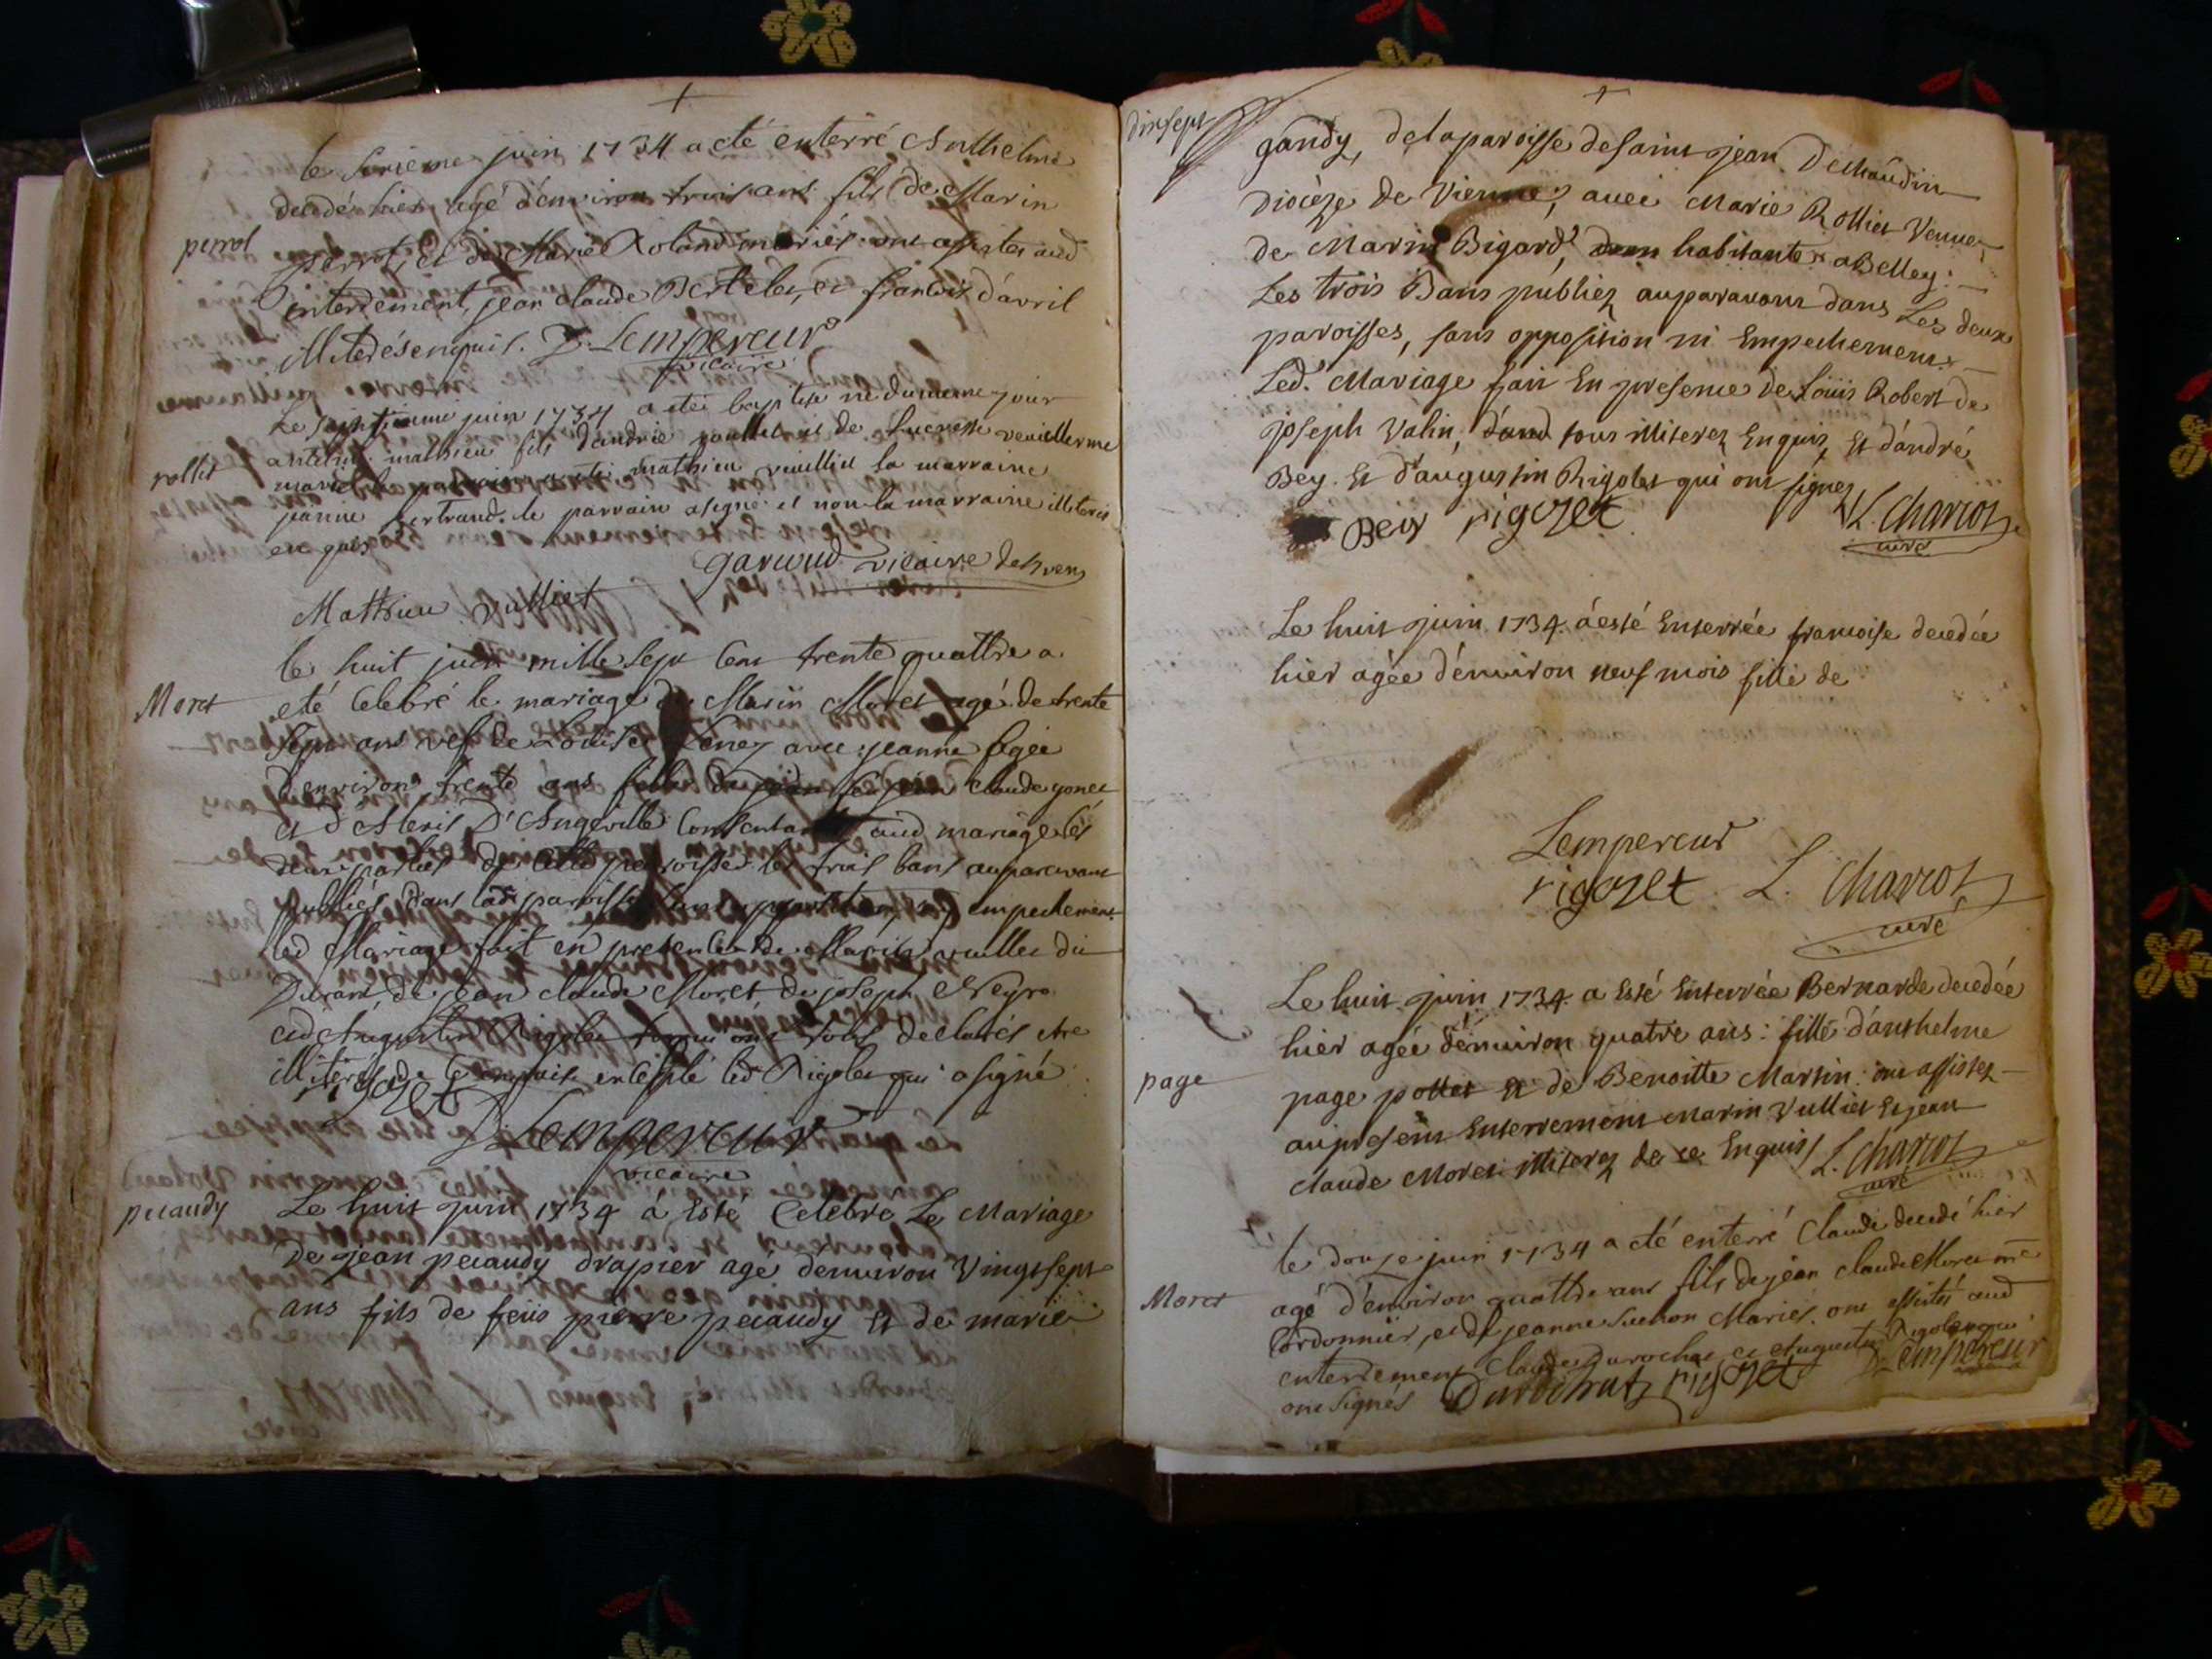 le juin 1734 a eté enterré Anthelme
decedé hier agé d'environ trois ans fils de Marin
perrot
perrot, et de Marie Roland mariés ont assistes aud
interrement, jean claude Bertelet, et francois d'avril
illiterés enquis. Lempereur
vicaire
Le juin 1734 a eté baptise ne du meme jour
rollet
antelme mathieu fils dandrie et de Lucresse
mathieu vuilliet la marraine
jeanne bertrand. le parrain a signé et non la marraine illiterée
en quis
vicaire
Mathieu vulliet
le huit juin mille sept cent trente quattre a
Moret
eté Celebré le mariage de Marin Moret agé de trente
sept ans vef de Louise avec jeanne agée
d'environ trente ans fille claude
et d'Alexis D'Angeville Consentant aud mariage les
deux parties de cette paroisse les trois bans auparavant
publiés dans lad paroisse sans opposition, ny empechement
led Mariage fait en presence de Marin vuillet dit
Durant, de jean claude Moret de joseph Neyro
et d'Augustin Rigolet declarés etre
illiterés de ce enquis excepté led Rigolet qui a signé
rigozet
Lempereur
vicaire
pecaudy
Le huit juin 1734 á Esté Celebre Le Mariage
De jean pecaudy drapier agé denuiron Vingt sept
ans fils de feüs pierre pecaudy Et de marie
dixsept
gandy, de la paroisse de saint jean
Diocèze de Vienne, auec Marie Rollies Veuue
de Marin Bigard, habitante a Belley :
Les trois Bans publiez auparauant dans Les deux
paroisses, sans opposition ni Empechement.
Led. Mariage fait En presence de Loüis Robert de
joseph Valin, tous illiterez Enquis, Et d'andré
Bey. Et d'augustin Rigolet qui ont signez
Bey rigozet L. Charcot
curé
Le huit juin 1734. á esté Enterrée francoise decedée
hier agée d'enuiron neuf mois fille de
Lempereur
rigozet L. Charcot
curé
Le huit juin 1734. a Esté Enterrée Bernarde decedée
hier agée d'enuiron quatre ans : fille d'anthelme
page
page pottet Et de Benoitte Martin : ont assistez
au present Enterrement Marin Vulliet Et jean
claude Moret illiterez de ce Enquis L. Charcot
curé
le douze juin 1734 a eté enterré Claude decedé hier
Moret
agé d'environ quattre ans fils de jean claude Moret me
Cordonnier, et de jeanne Suchon Mariés. ont assistés aud
enterrement Claude Durochat et Augustin Rigolet qui
ont signés Durochat rigozet Lempereur